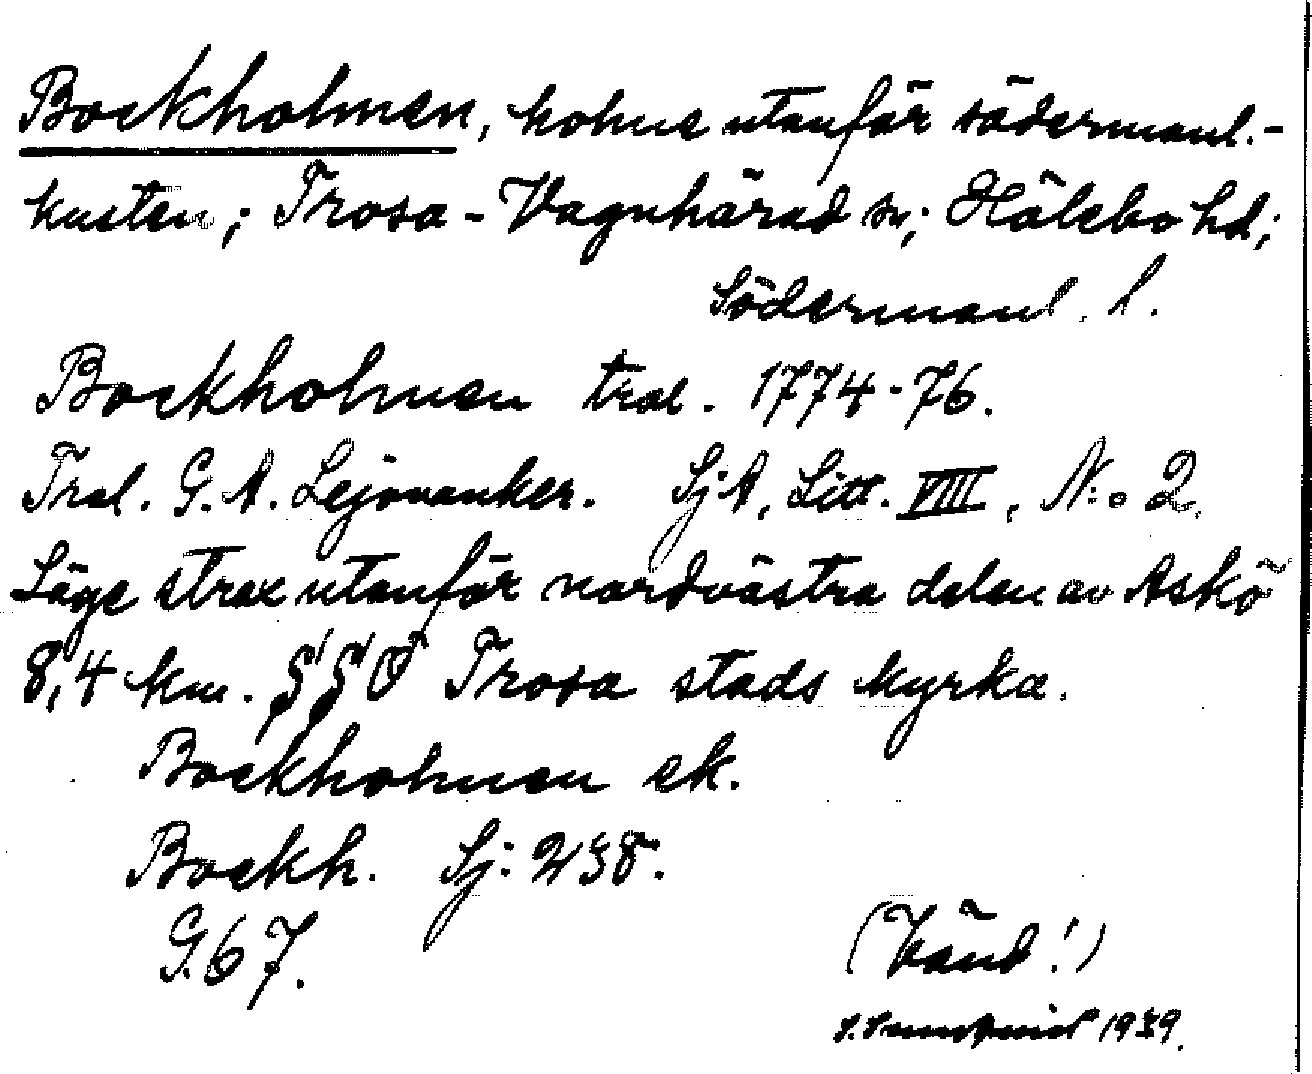 Bockholmen, holme utanför södermanl.-
kusten; Trosa-Vagnhärad sn; Hölebo hd;
Södermanl. l.
Bockholmen tral. 1774-76.
Tral. G. A. Lejonanker. SjA, Litt. VIII, N:o 2.
Läge strax utanför nordvästra delen av Askö
8,4 km. SSO Trosa stads kyrka.
Bockholmen ek.
Bockh. Sj: 238.
G.67.
(Vänd!)
1939.